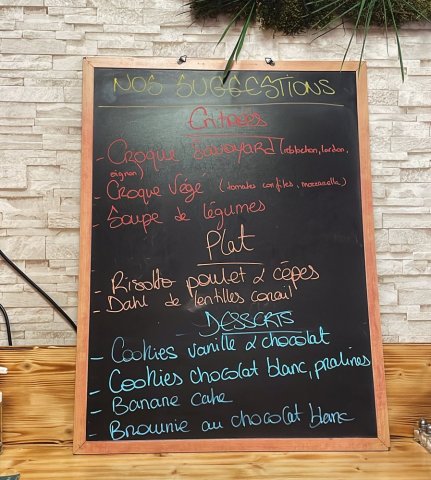 NOS SUGGESTIONS
Entrées
- Croque Savoyard (reblochon, lardon,
oignon)
- Croque Végé (tomates confites, mozzarella)
- Soupe de légumes
Plat
- Risotto poulet & cèpes
- Dahl de lentilles corail
DESSERTS
- Cookies vanille & chocolat
- Cookies chocolat blanc, pralines
- Banane cake
- Brownie au chocolat blanc